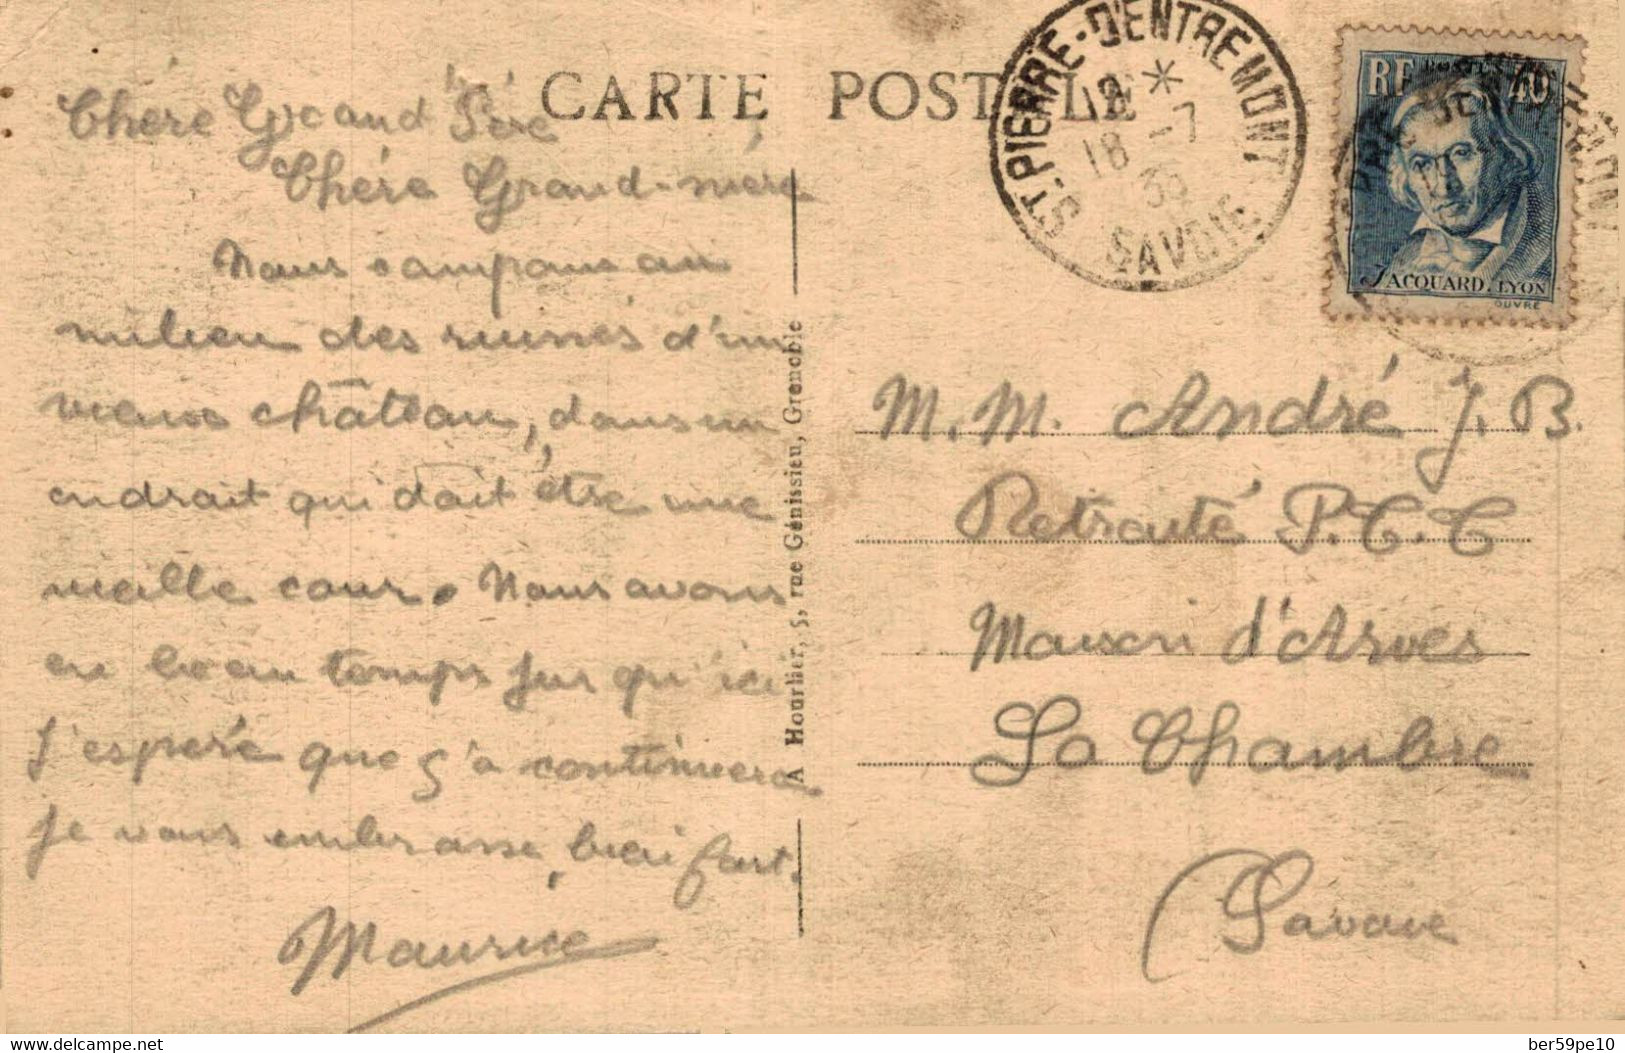 CARTE POSTALE
Chére Grand Pére
Chére Grand-mére
Nous campons au
milieu des ruines d'un
vieux château, dans un
endroit qui doit être une
vieille cour. Nous avons
eu beau temps jus qu'ici
j'espére que ç'a continuera
je vous embrasse bien fort.
Maurice
A Hourlier, 5, rue Génissieu, Grenoble
ST PIERRE-D'ENTREMONT
18 -7
35
SAVOIE
RF POSTES 40
JACQUARD. LYON
OUVRÉ
M. M. André J. B.
Retraité P.T.T
Maison d'Arves
La Chambre
Savoie
delcampe.net
ber59pe10